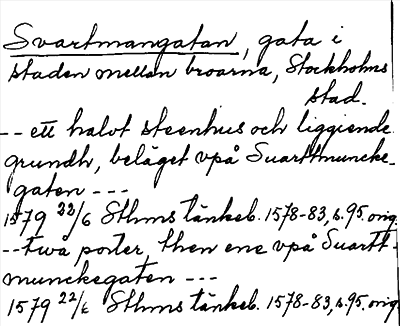 Svartmangatan, gata i
staden mellan broarna, Stockholms
stad.
-- ett halvt steenhus och liggiende
grundh, beläget vpå Suarttmuncke-
gaten ---
1579 22/6 Sthms tänkeb. 1578-83, s. 95. orig.
-- twå porter, then ene vpå Suartt-
munckegaten ---
1579 22/6 Sthms tänkeb. 1578-83, s. 95. orig